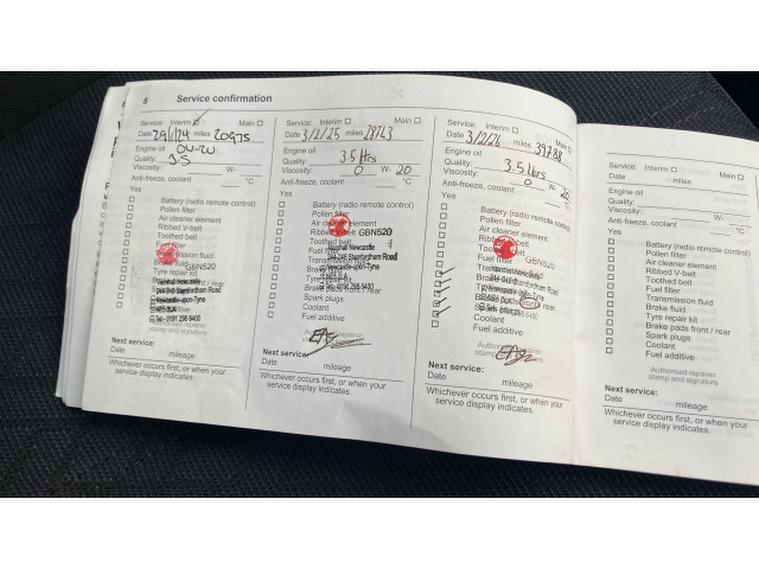 8 Service confirmation
Service: Interim Main
Date 29/1/24 miles 20975
Engine oil 0W-20
Quality: 3.5
Viscosity: W-
Anti-freeze, coolant °C
Yes
Battery (radio remote control)
Pollen filter
Air cleaner element
Ribbed V-belt
Toothed belt
Fuel filter
Brake fluid
GBN520
Tyre repair kit
Vauxhall Newcastle
244-246 Stamfordham Road
Newcastle-upon-Tyne
NE5
Tel: 0191 298 6400
Authorised repairer
stamp and signature
Next service:
Date mileage
Whichever occurs first, or when your
service display indicates.
Service: Interim Main
Date 3/2/25 miles 28743
Engine oil
Quality: 3.5 ltrs
Viscosity: 0 W- 20
Anti-freeze, coolant °C
Yes
Battery (radio remote control)
Pollen filter
Air cleaner element
Ribbed V-belt GBN520
Toothed belt
Vauxhall Newcastle
244-246 Stamfordham Road
Newcastle-upon-Tyne
Tel: 0191 298 6400
Brake pads front / rear
Spark plugs
Coolant
Fuel additive
Next service:
Date mileage
Whichever occurs first, or when your
service display indicates.
Service: Interim Main
Date 3/2/26 miles 39788
Engine oil
Quality: 3.5 ltrs
Viscosity: 0 W- 20
Anti-freeze, coolant °C
Yes
Battery (radio remote control)
Pollen filter
Air cleaner element
Ribbed V-belt
Toothed belt
Fuel filter GBN520
front / rear
Spark plugs
Coolant
Fuel additive
Authorised repairer
Next service:
Date mileage
Whichever occurs first, or when your
service display indicates.
Service: Interim Main
Date miles
Engine oil
Quality:
Viscosity: W-
Anti-freeze, coolant °C
Yes
Battery (radio remote control)
Pollen filter
Air cleaner element
Ribbed V-belt
Toothed belt
Fuel filter
Transmission fluid
Brake fluid
Tyre repair kit
Brake pads front / rear
Spark plugs
Coolant
Fuel additive
Authorised repairer
stamp and signature
Next service:
Date mileage
Whichever occurs first, or when your
service display indicates.